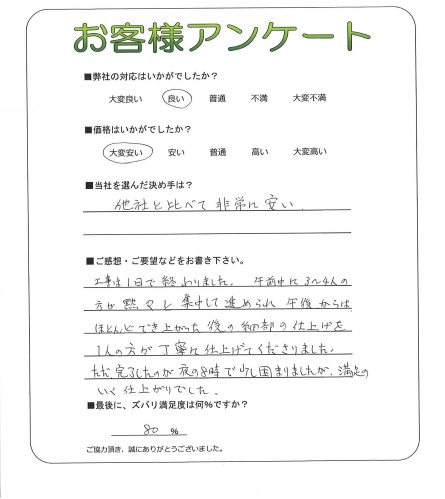 お客様アンケート
■弊社の対応はいかがでしたか？
大変良い 良い 普通 不満 大変不満
■価格はいかがでしたか？
大変安い 安い 普通 高い 大変高い
■当社を選んだ決め手は？
他社と比べて非常に安い.
■ご感想・ご要望などをお書き下さい。
工事は1日で終わりました。 午前中に3〜4人の
方が黙々と集中して進められ午後からは
ほとんどでき上がった後の細部の仕上げを
1人の方が丁寧に仕上げてくださりました.
ただ完了したのが夜の8時で少し困まりましたが、満足の
いく仕上がりでした.
■最後に、ズバリ満足度は何％ですか？
80 ％
ご協力頂き、誠にありがとうございました。